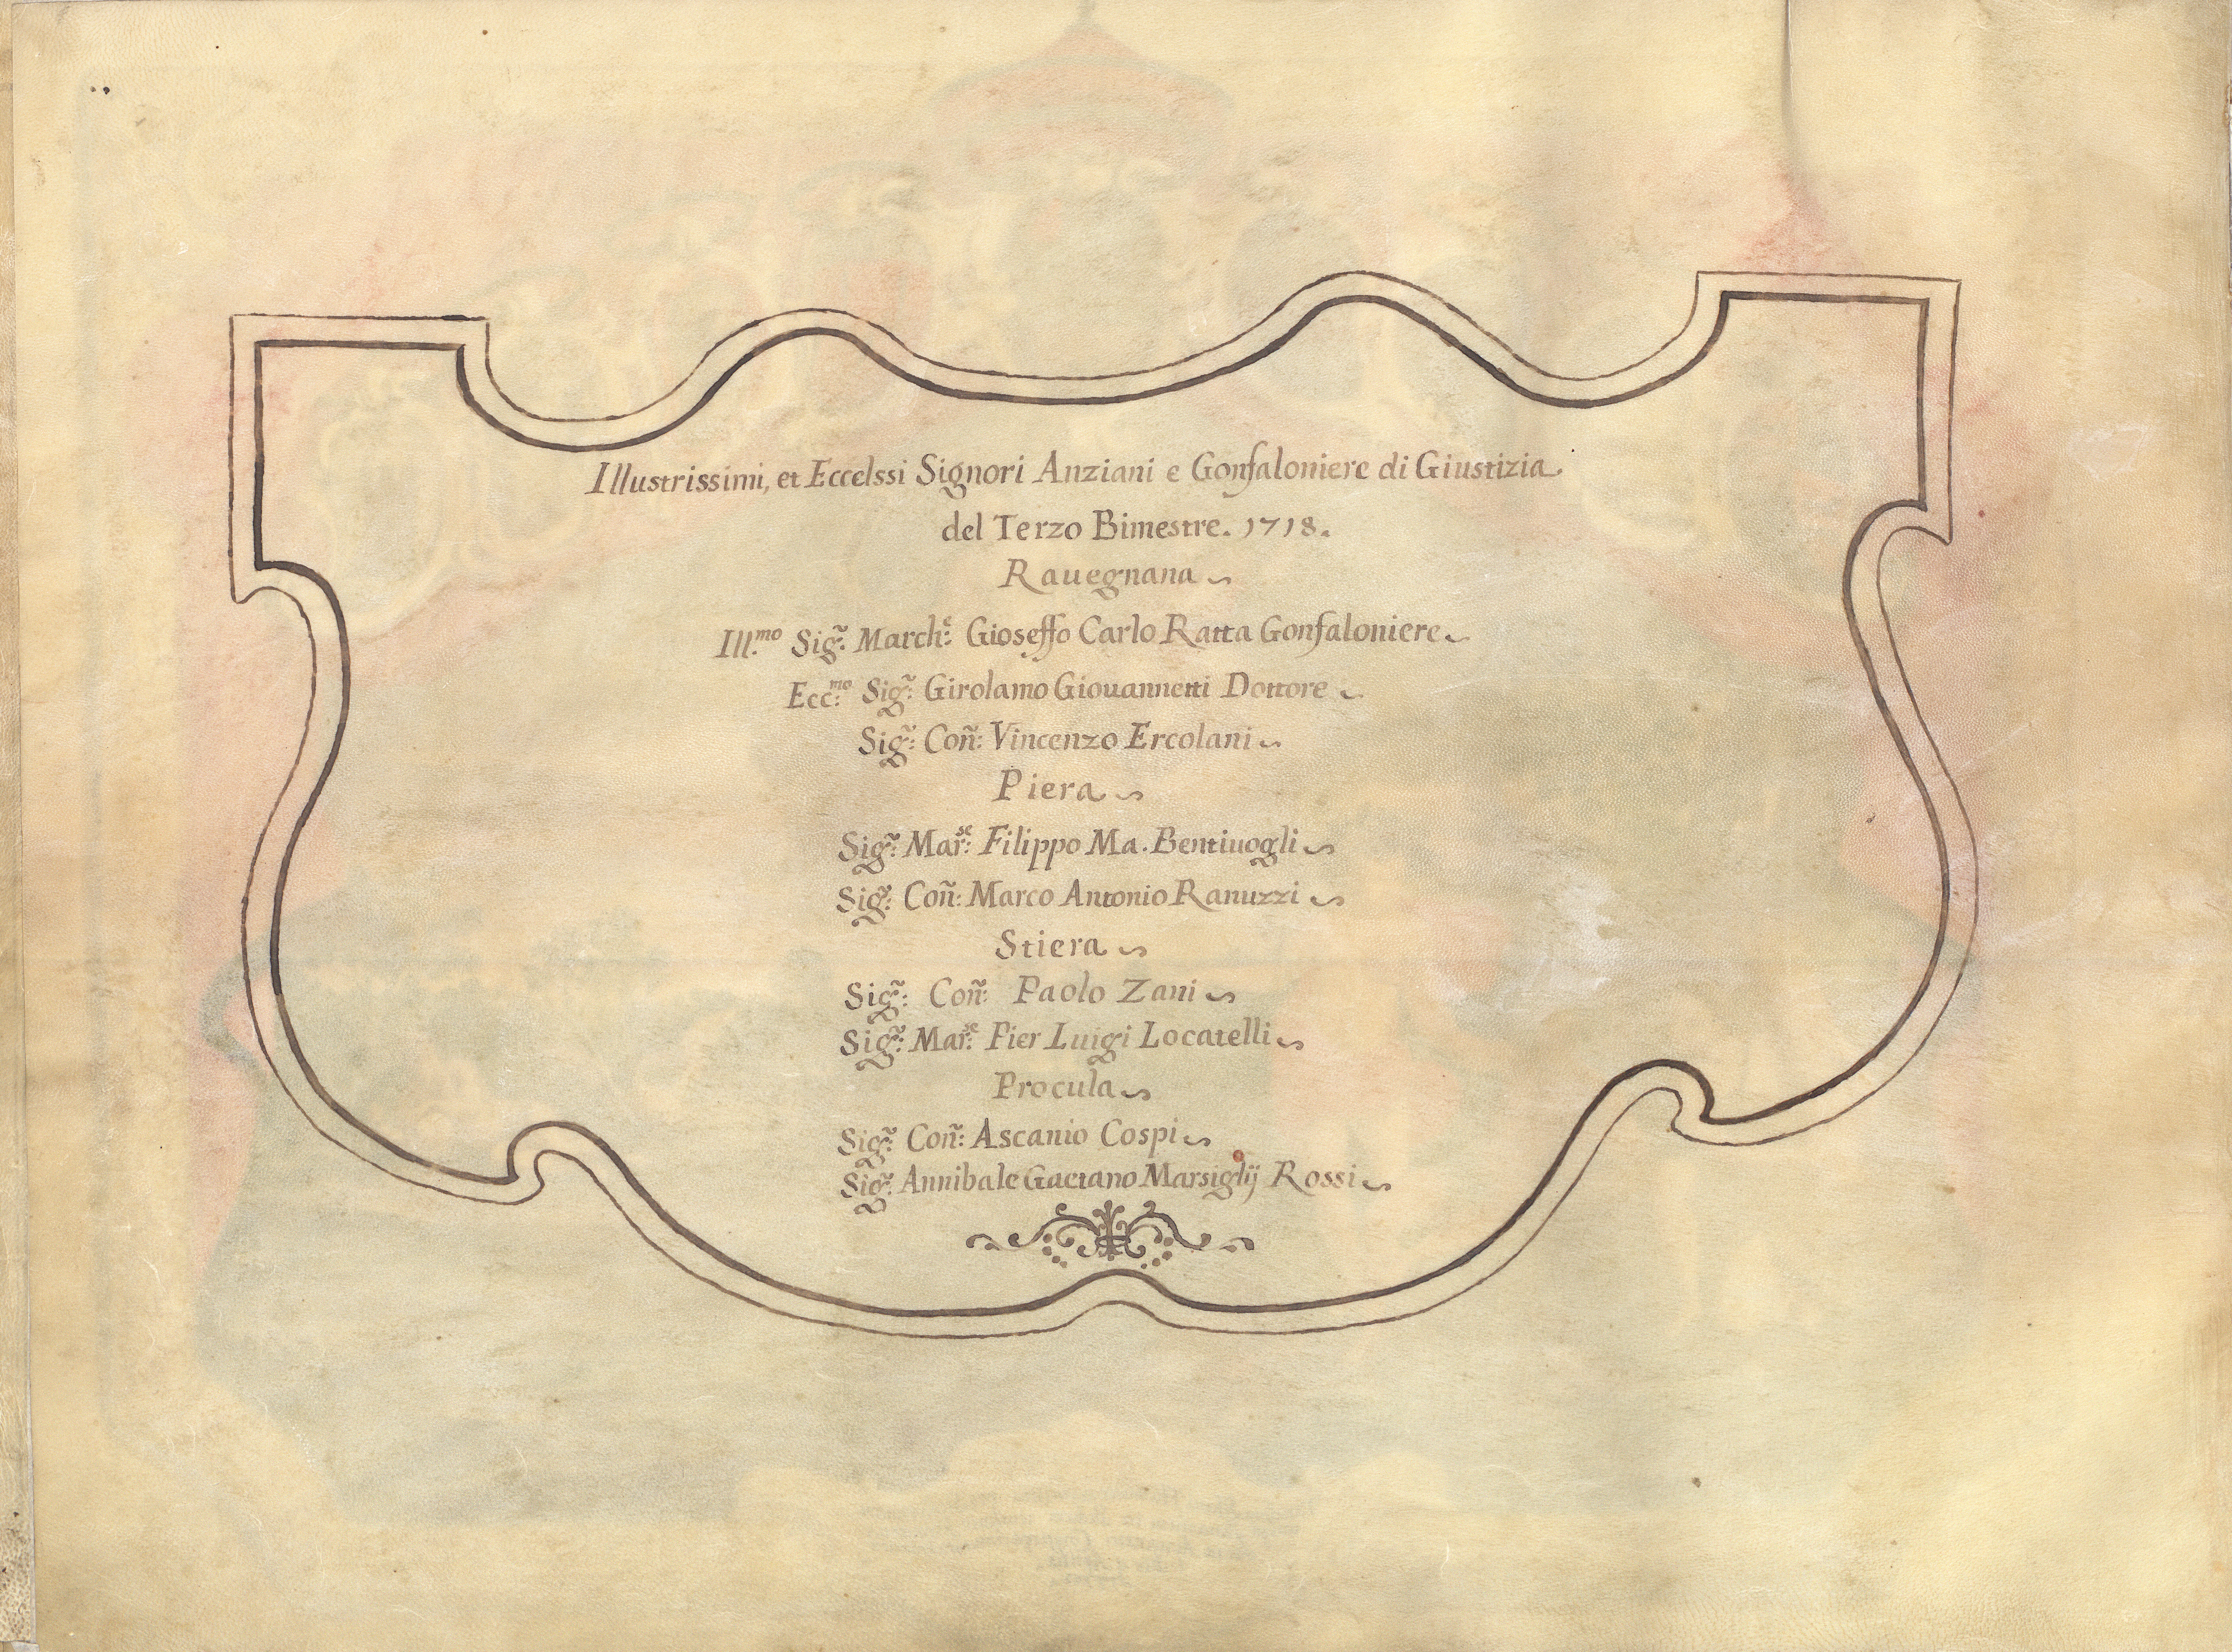 Illustrissimi, et Eccelssi Signori Anziani e Gonfaloniere di Giustizia.
del Terzo Bimestre. 1718.
Rauegnana
Ill.mo Sig.r March.e Gioseffo Carlo Ratta Gonfaloniere
Ecc.mo Sig.r Girolamo Giouannetti Dottore
Sig.r Coñ: Vincenzo Ercolani
Piera
Sig.r Mar.se Filippo Ma. Bentiuogli
Sig.r Coñ: Marco Antonio Ranuzzi
Stiera
Sig.r Coñ: Paolo Zani
Sig.r Mar.se Pier Luigi Locatelli
Procula
Sig.r Coñ: Ascanio Cospi
Sig.r Annibale Gaetano Marsiglij Rossi